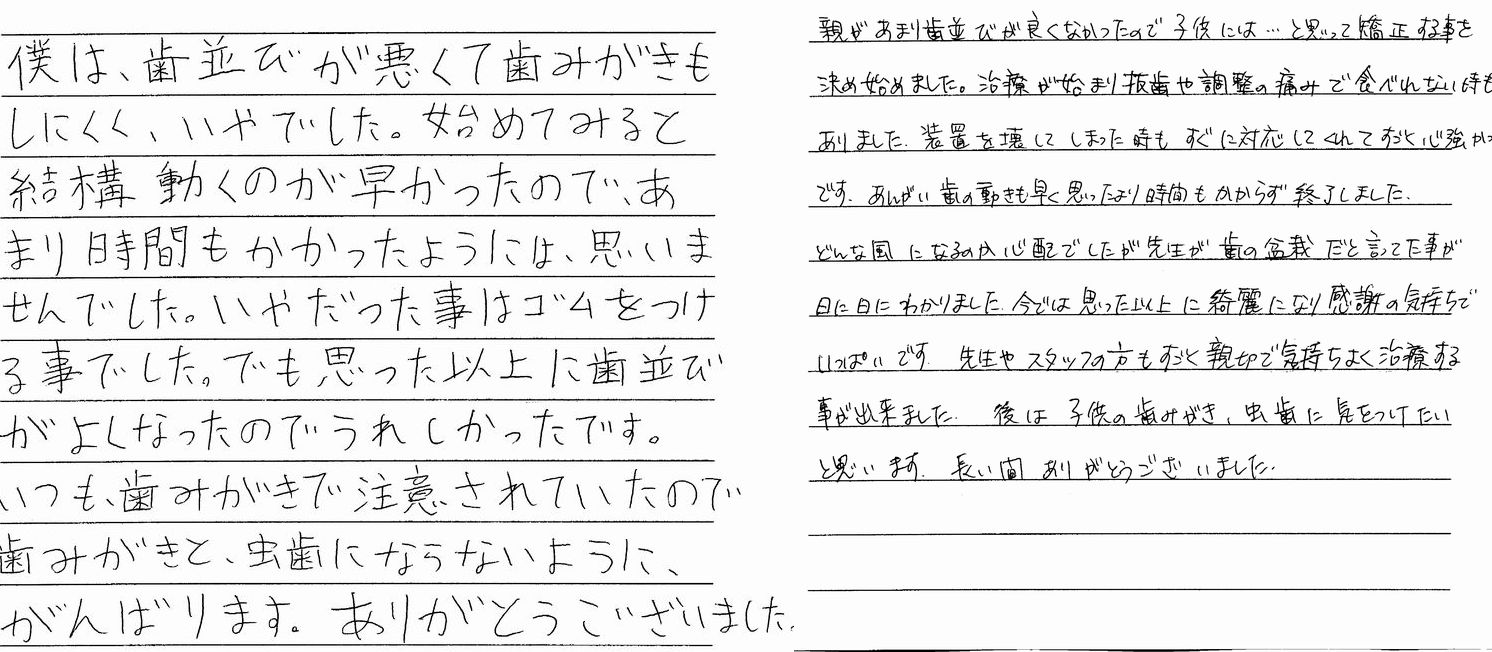 僕は、歯並びが悪くて歯みがきも
しにくく、いやでした。始めてみると
結構動くのが早かったので、あ
まり時間もかかったようには、思いま
せんでした。いやだった事はゴムをつけ
る事でした。でも思った以上に歯並び
がよくなったのでうれしかったです。
いつも、歯みがきで注意されていたので
歯みがきと、虫歯にならないように、
がんばります。ありがとうございました。
親があまり歯並びが良くなかったので子供には…と思って矯正する事を
決め始めました。治療が始まり抜歯や調整の痛みで食べれない時も
ありました。装置を壊してしまった時もすぐに対応してくれてすごく心強かっ
です。あんがい歯の動きも早く思ったより時間もかからず終了しました。
どんな風になるのか心配でしたが先生が歯の盆栽だと言ってた事が
日に日にわかりました。今では思った以上に綺麗になり感謝の気持ちで
いっぱいです。先生やスタッフの方もすごく親切で気持ちよく治療する
事が出来ました。後は子供の歯みがき、虫歯に気をつけたい
と思います。長い間ありがとうございました。